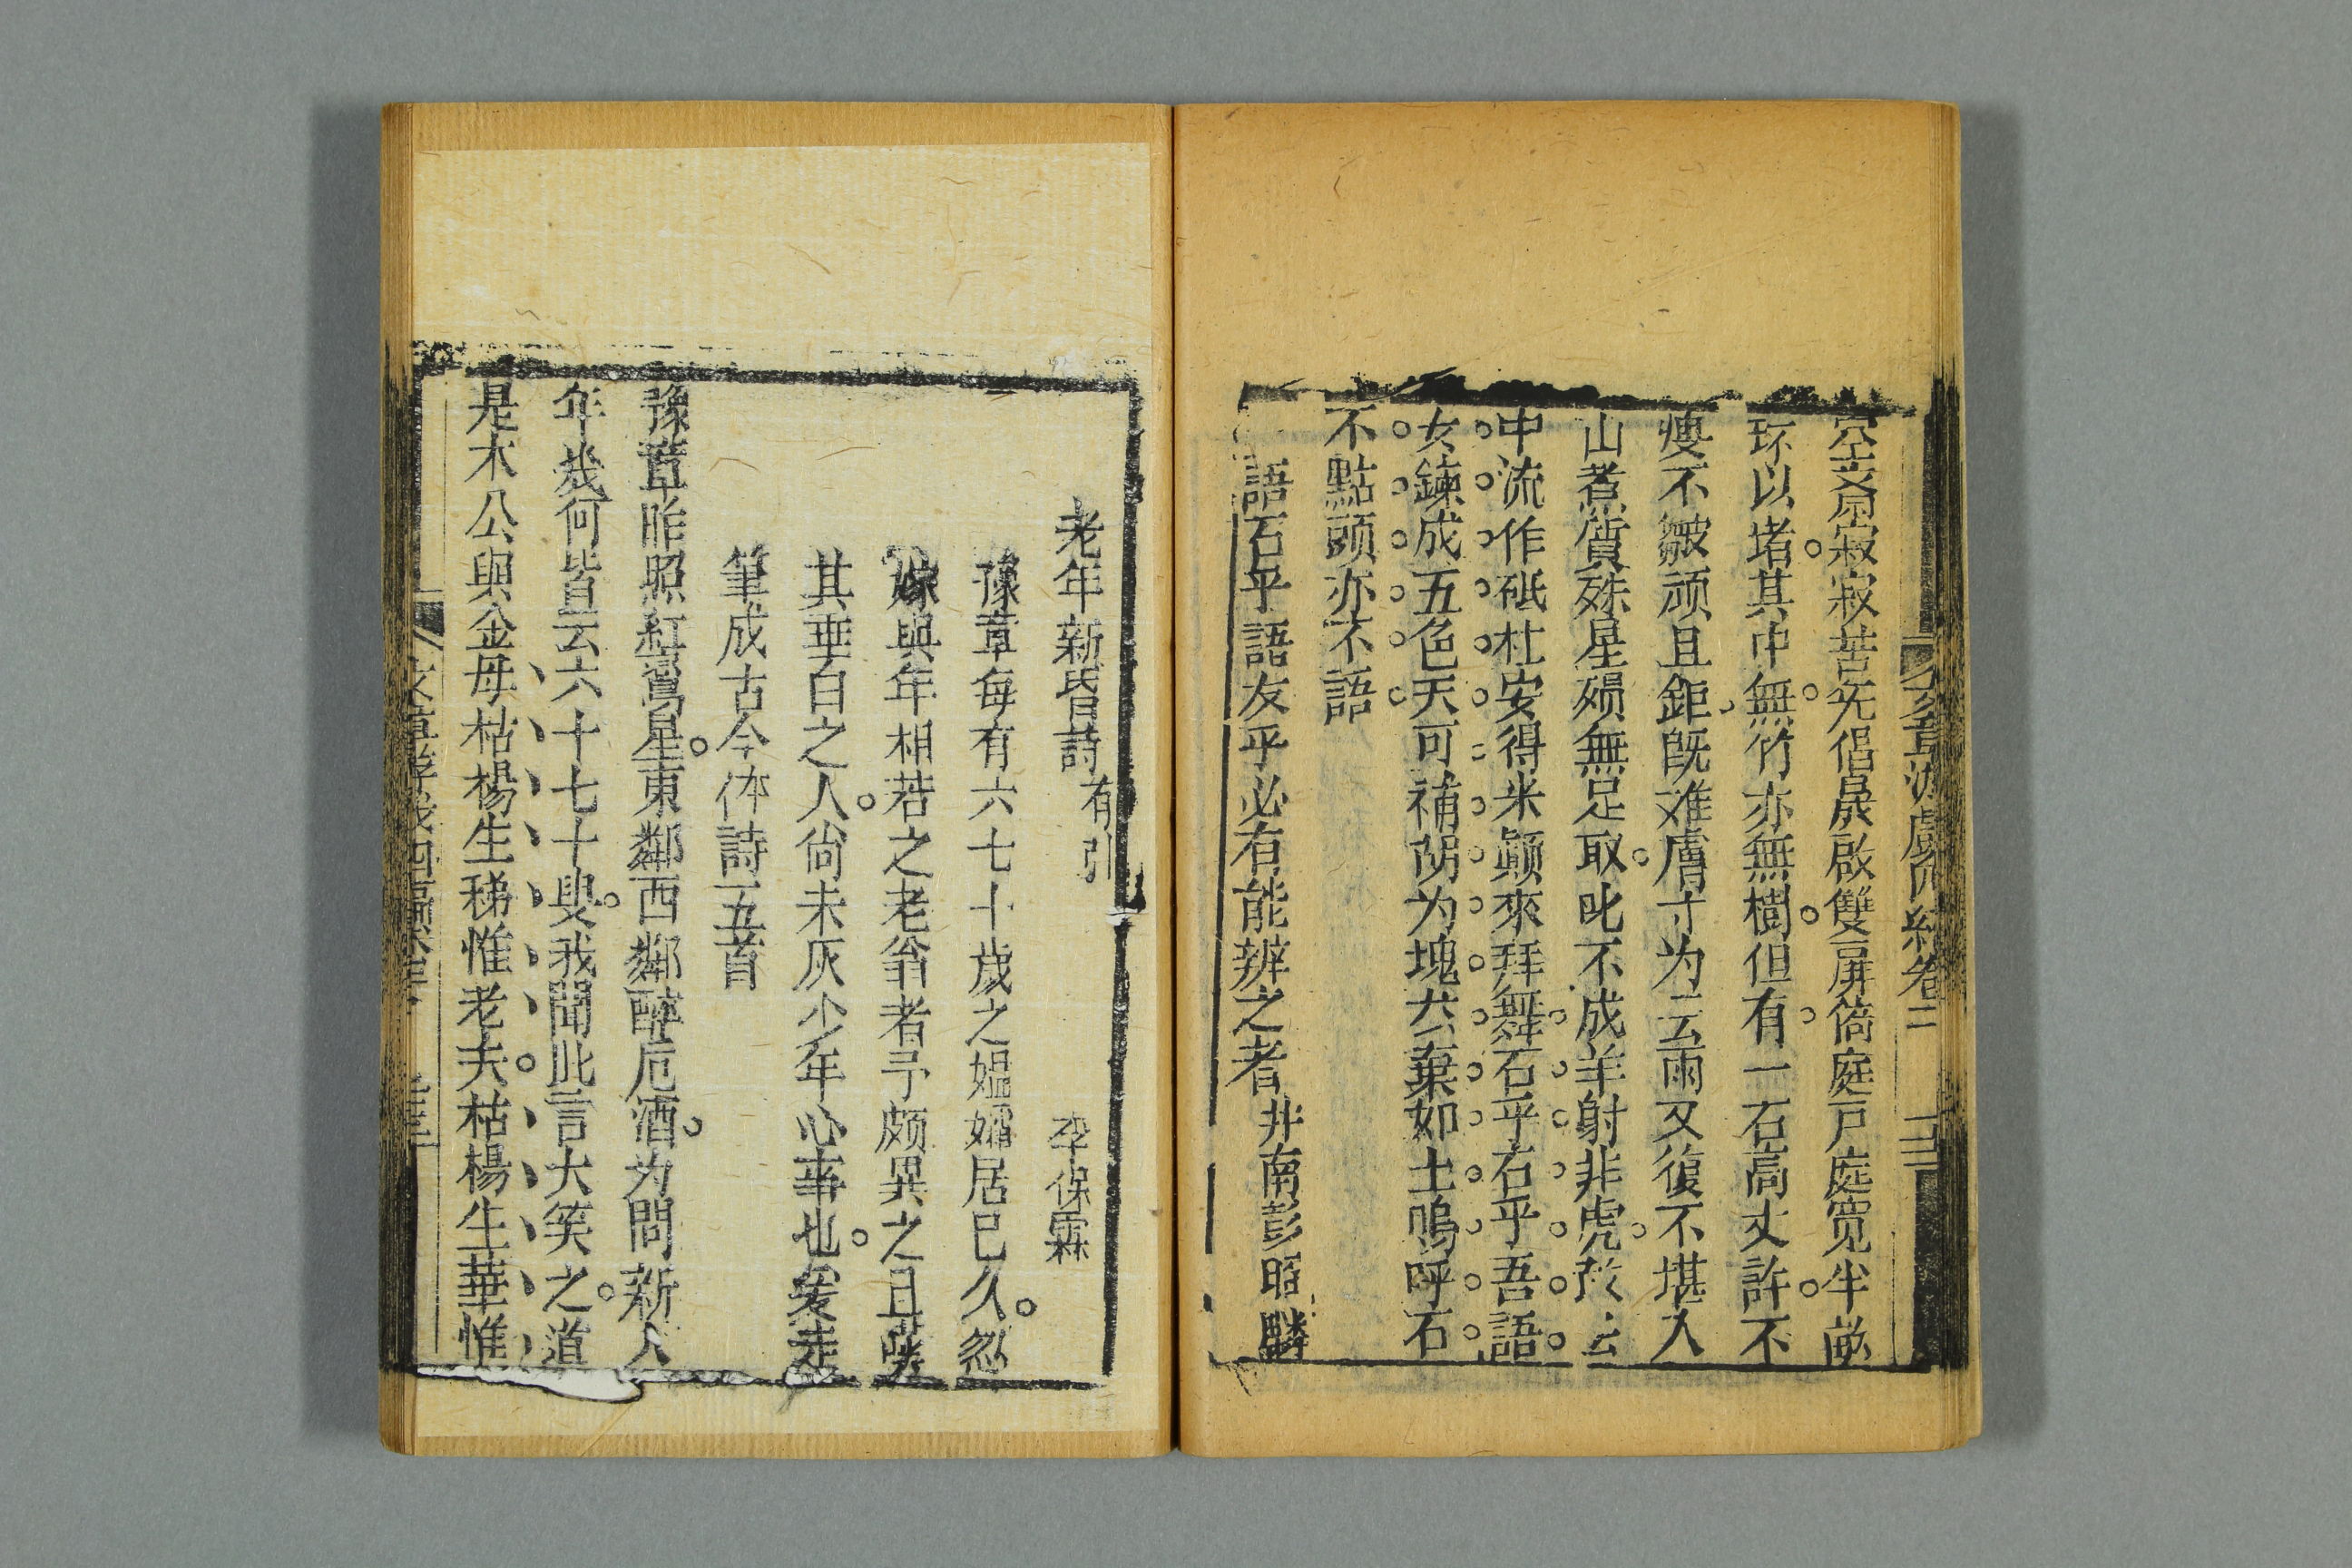 空斎寂寂苦无侣晨啟雙扉倚庭戸庭寛半畝
环以堵其中無竹亦無樹但有一石高丈許不
瘦不皺頑且鉅既难膚寸为云雨又復不堪入
山煮質殊星殞無足取叱不成羊射非虎
中流作砥柱安得米顛來拜舞石乎石乎吾語
女鍊成五色天可補胡为塊然棄如土嗚呼石
不點頭亦不語
語石乎語友乎必有能辨之者 井南彭昭麟
老年新皆詩有引 李保霖
豫章每有六七十歲之媪孀居已久忽
嫁與年相若之老翁者予頗異之且嘆
其垂白之人尙未灰少年心事也爰走
筆成古今体詩五首
豫章昨照紅鸞星東鄰西鄰醉卮酒为問新人
年幾何皆云六十七十叟我聞此言大笑之道
是木公與金母枯楊生稊惟老夫枯楊生華惟